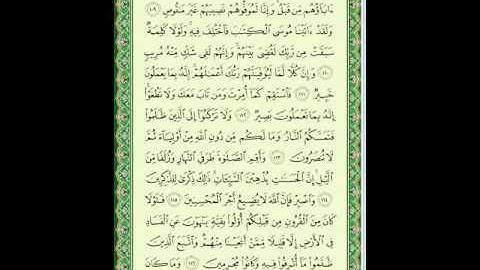 ءَابَآؤُهُم مِّن قَبْلُ وَإِنَّا لَمُوَفُّوهُمْ نَصِيبَهُمْ غَيْرَ مَنقُوصٍ ١٠٩
وَلَقَدْ ءَاتَيْنَا مُوسَى ٱلْكِتَٰبَ فَٱخْتُلِفَ فِيهِ وَلَوْلَا كَلِمَةٌ
سَبَقَتْ مِن رَّبِّكَ لَقُضِىَ بَيْنَهُمْ وَإِنَّهُمْ لَفِى شَكٍّ مِّنْهُ مُرِيبٍ
١١٠ وَإِنَّ كُلًّا لَّمَّا لَيُوَفِّيَنَّهُمْ رَبُّكَ أَعْمَٰلَهُمْ إِنَّهُۥ بِمَا يَعْمَلُونَ
خَبِيرٌ ١١١ فَٱسْتَقِمْ كَمَآ أُمِرْتَ وَمَن تَابَ مَعَكَ وَلَا تَطْغَوْا۟
إِنَّهُۥ بِمَا تَعْمَلُونَ بَصِيرٌ ١١٢ وَلَا تَرْكَنُوٓا۟ إِلَى ٱلَّذِينَ ظَلَمُوا۟
فَتَمَسَّكُمُ ٱلنَّارُ وَمَا لَكُم مِّن دُونِ ٱللَّهِ مِنْ أَوْلِيَآءَ ثُمَّ
لَا تُنصَرُونَ ١١٣ وَأَقِمِ ٱلصَّلَوٰةَ طَرَفَىِ ٱلنَّهَارِ وَزُلَفًا مِّنَ
ٱلَّيْلِ إِنَّ ٱلْحَسَنَٰتِ يُذْهِبْنَ ٱلسَّيِّـَٔاتِ ذَٰلِكَ ذِكْرَىٰ لِلذَّٰكِرِينَ
١١٤ وَٱصْبِرْ فَإِنَّ ٱللَّهَ لَا يُضِيعُ أَجْرَ ٱلْمُحْسِنِينَ ١١٥ فَلَوْلَا
كَانَ مِنَ ٱلْقُرُونِ مِن قَبْلِكُمْ أُو۟لُوا۟ بَقِيَّةٍ يَنْهَوْنَ عَنِ ٱلْفَسَادِ
فِى ٱلْأَرْضِ إِلَّا قَلِيلًا مِّمَّنْ أَنجَيْنَا مِنْهُمْ وَٱتَّبَعَ ٱلَّذِينَ
ظَلَمُوا۟ مَآ أُتْرِفُوا۟ فِيهِ وَكَانُوا۟ مُجْرِمِينَ ١١٦ وَمَا كَانَ